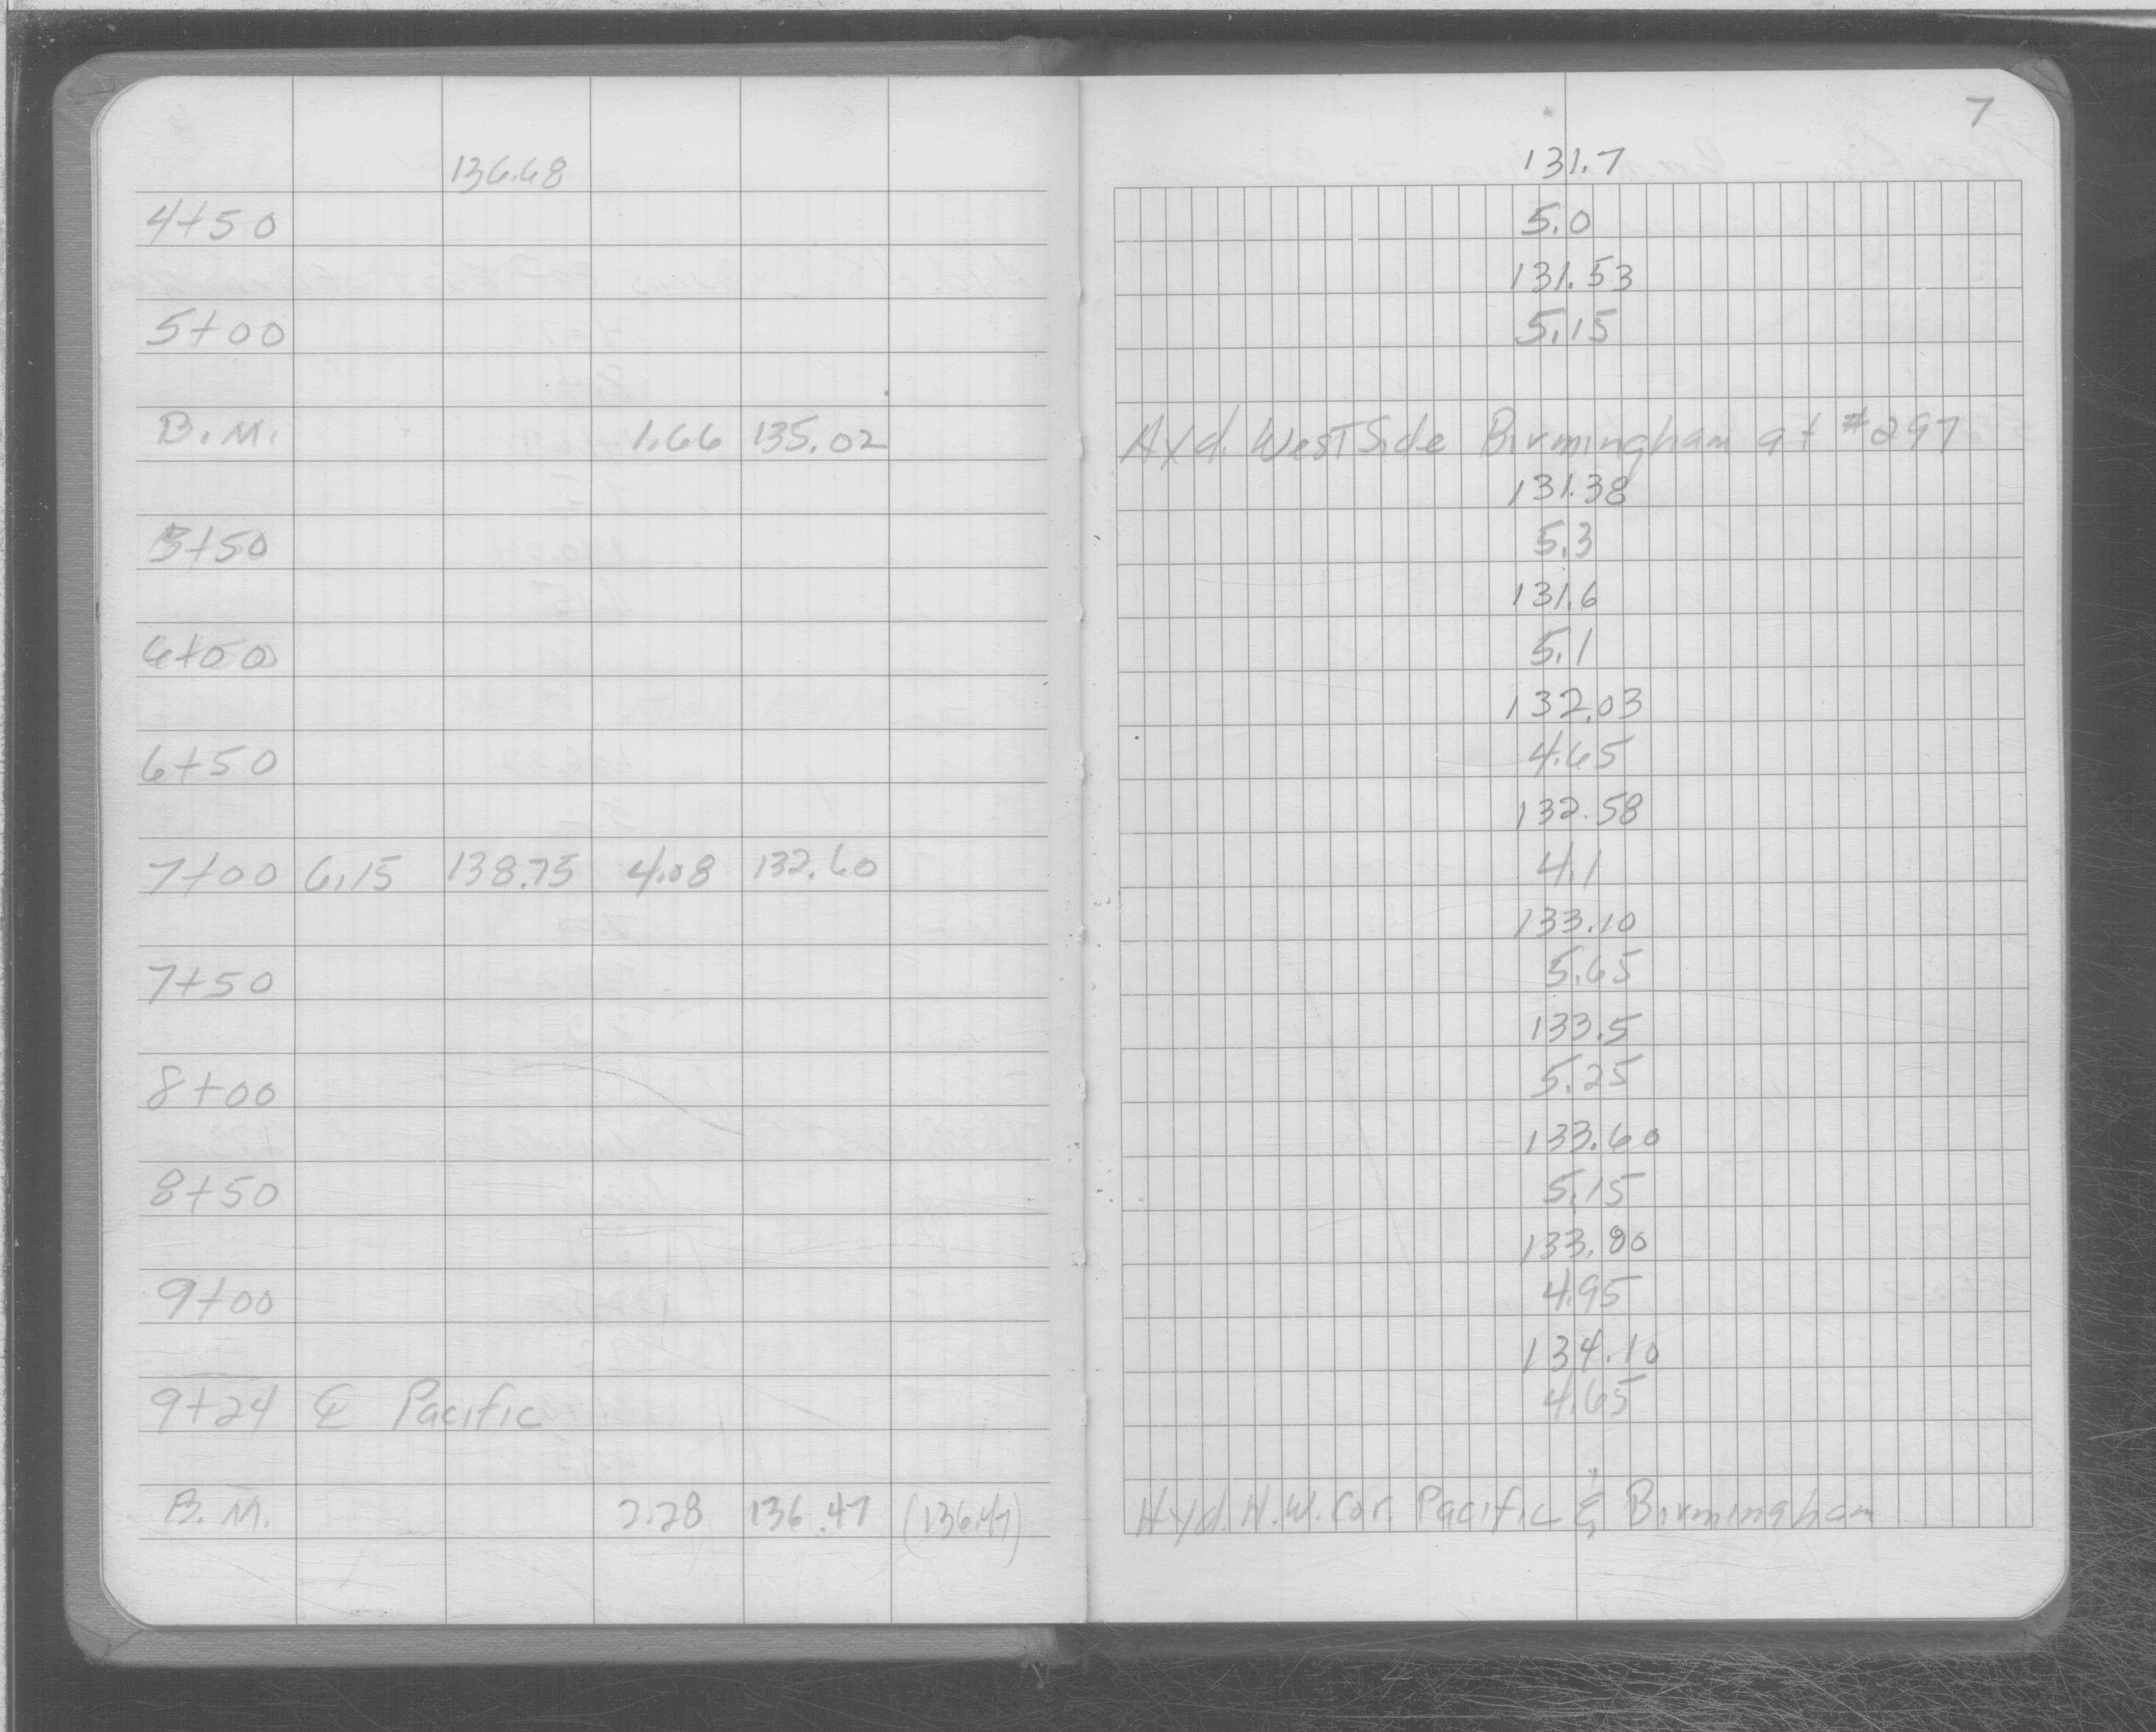 7
136.68 131.7
4+50 5.0
131.53
5+00 5.15
B.M. 1.66 135.02 Hyd. West Side Birmingham at #297
131.38
5+50 5.3
131.6
6+00 5.1
132.03
6+50 4.65
132.58
7+00 6.15 138.75 4.08 132.60 4.1
133.10
7+50 5.65
133.5
8+00 5.25
133.60
8+50 5.15
133.80
9+00 4.95
134.10
9+24 ℄ Pacific 4.65
B.M. 2.28 136.47 (136.47) Hyd. N.W. Cor. Pacific & Birmingham